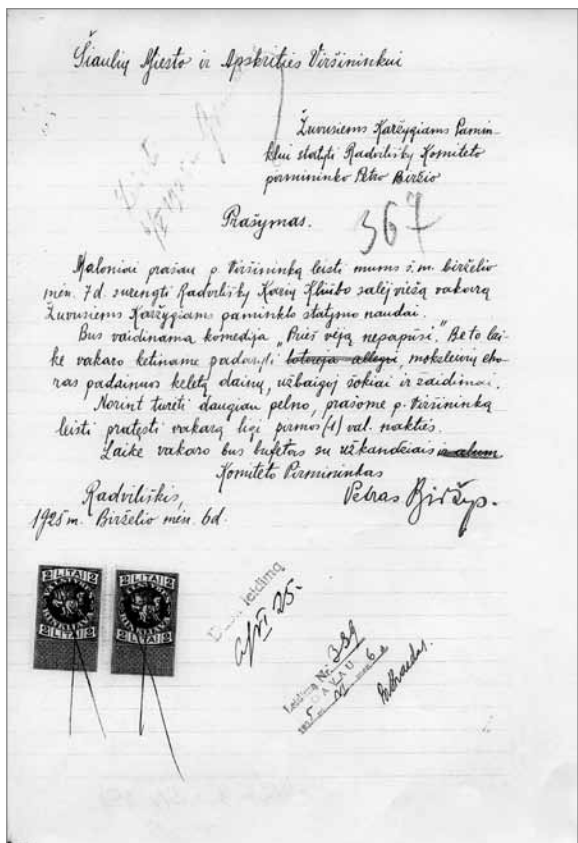 Šiaulių Miesto ir Apskrities Viršininkui
Žuvusiems Karžygiams Pamin-
klui statyti Radvilišky Komiteto
pirmininko Petro Biržio
Prašymas.
367
Maloniai prašau p. Viršininką leisti mums š.m. birželio
mėn. 7 d. surengti Radvilišky Karių Kliubo salėj viešą vakarą
Žuvusiems Karžygiams paminklo statymo naudai.
Bus vaidinama komedija „Prieš vėją nepapūsi." Be to lai-
ke vakaro ketiname padaryti loterėja allegri, moksleivių cho-
ras padainuos keletą dainų, užbaigoj šokiai ir žaidimai.
Norint turėti daugiau pelno, prašome p. Viršininką
leisti pratęsti vakarą ligi pirmos (1) val. nakties.
Laike vakaro bus bufetas su užkandžiais ir alum
Komiteto Pirmininkas
Radviliškis,
Petras Biržys.
1925 m. Birželio mėn. 6 d.
2 LITAI 2
2 LITAI 2
2 LITAI 2
2 LITAI 2
leidimą
VI 25.
Leidimą Nr. 339
GAVAU